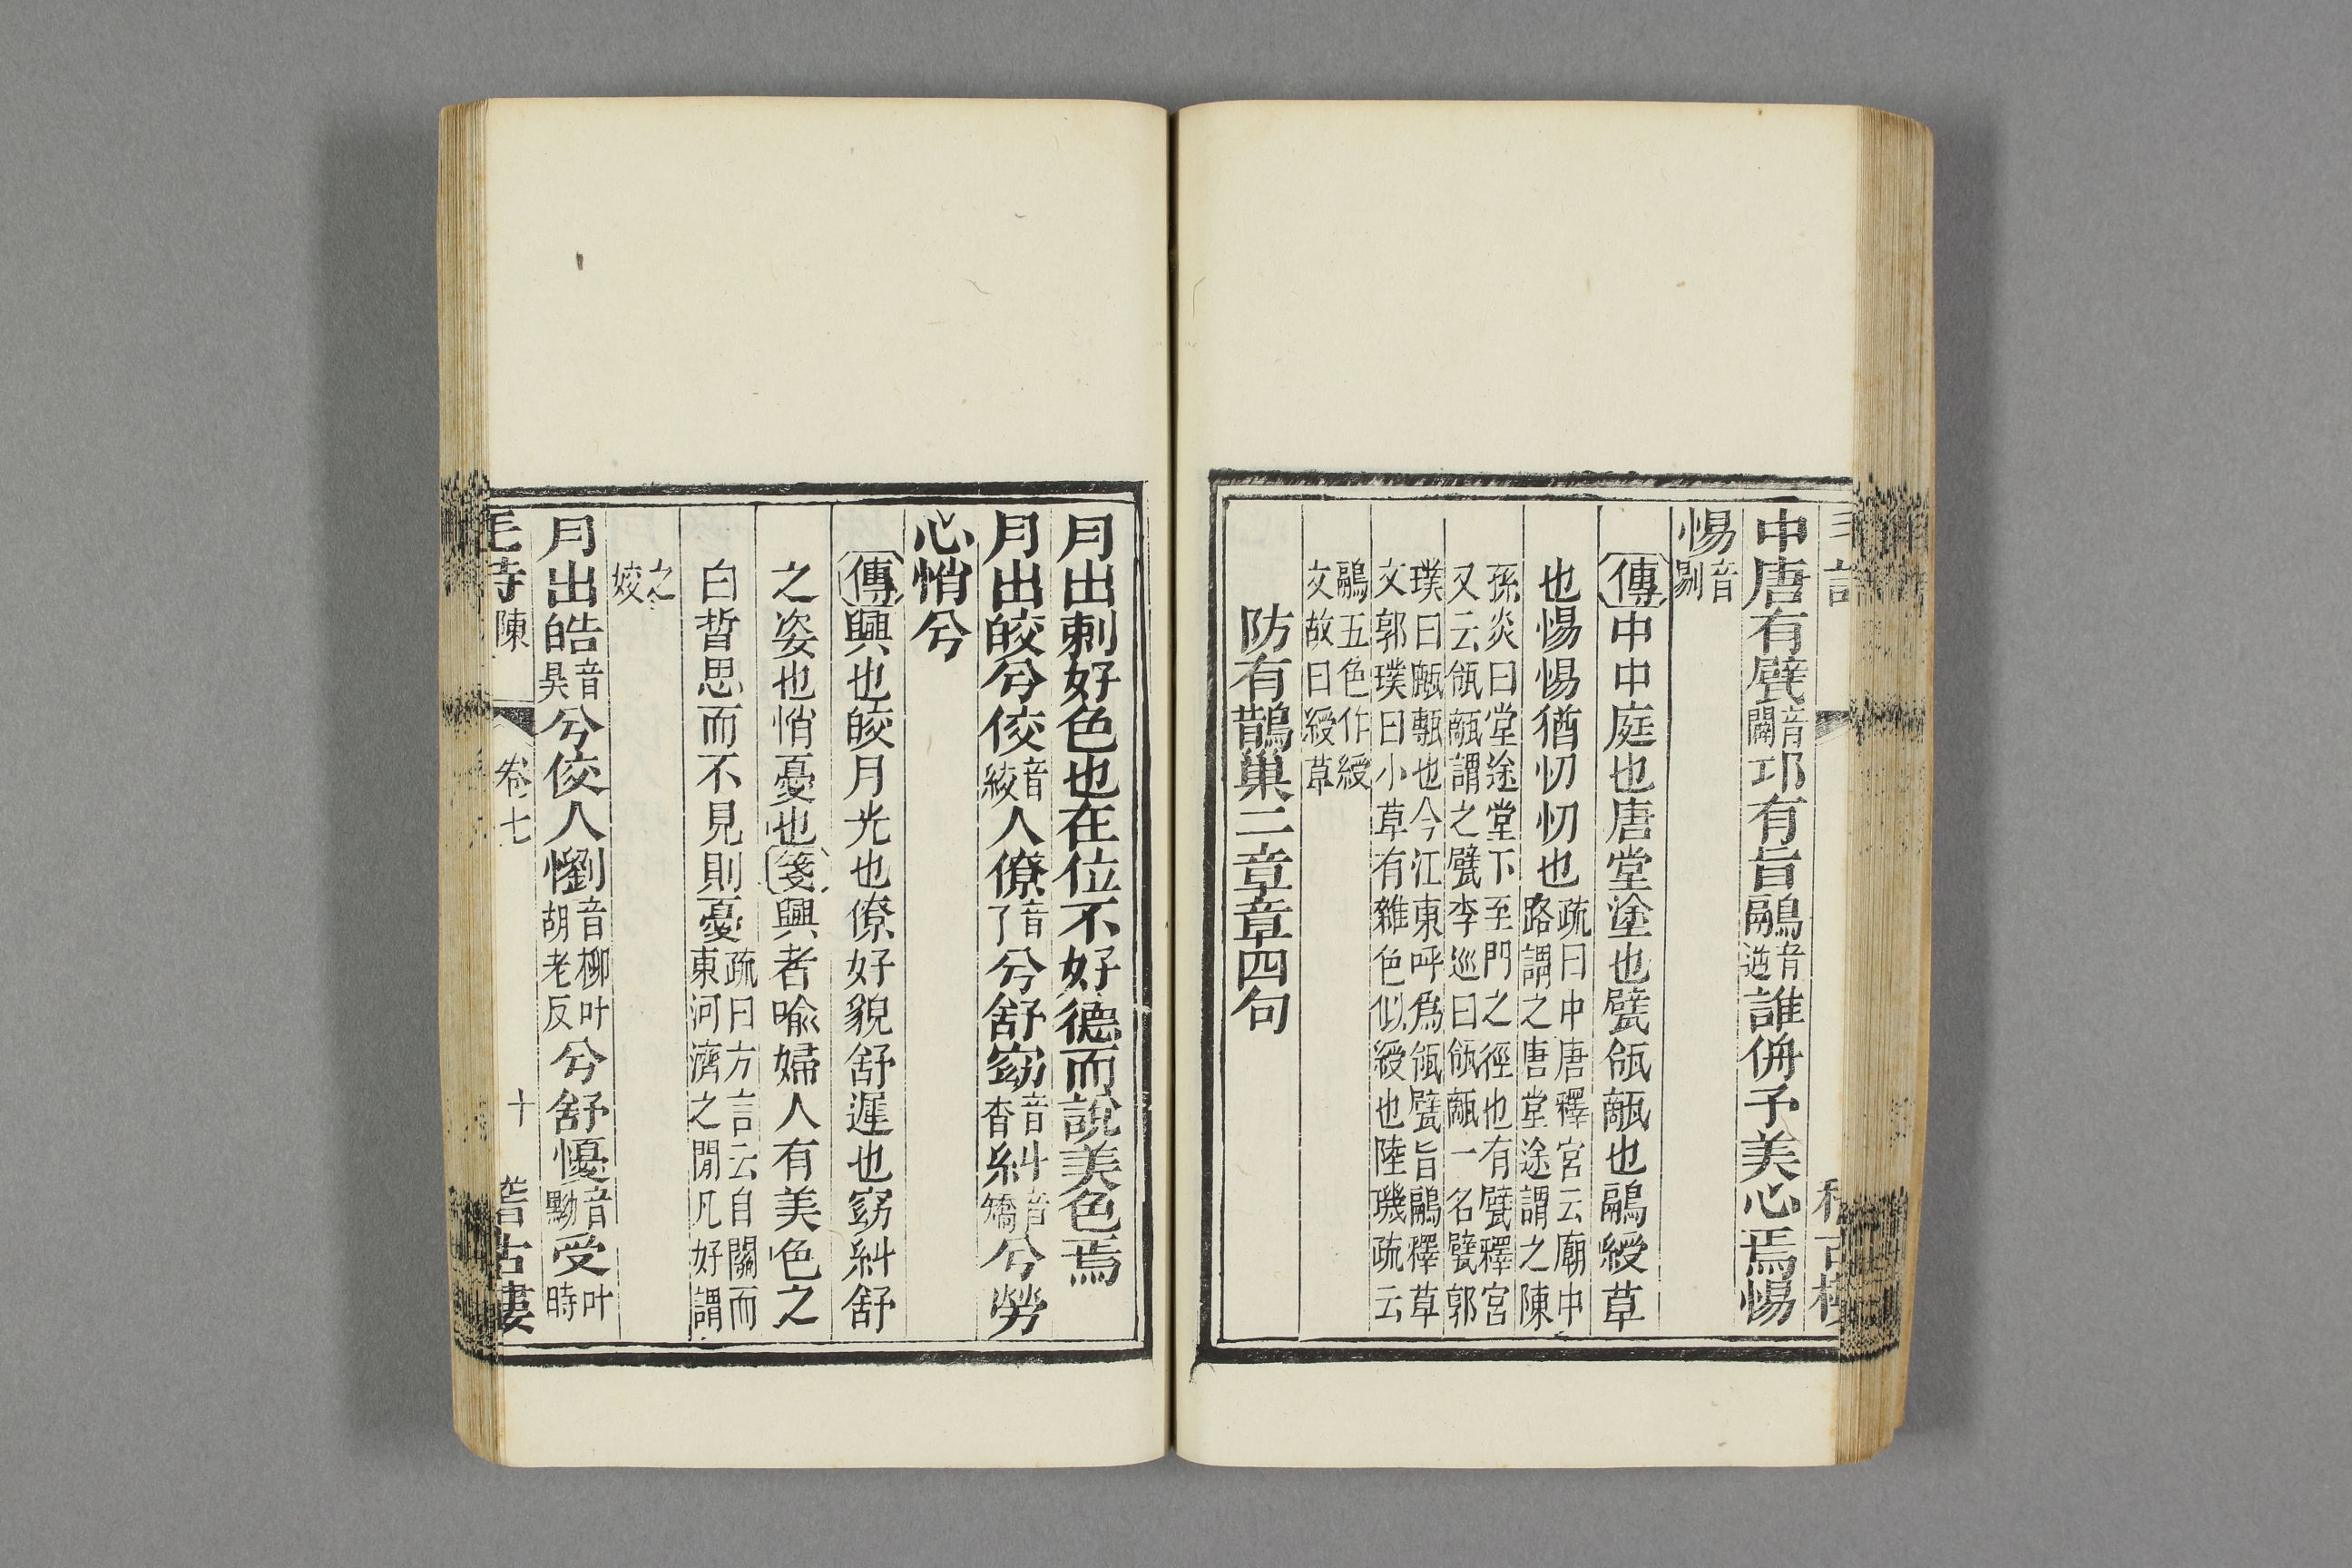 中唐有甓音闢邛有旨鷊音逆誰侜予美心焉惕
惕音剔
傳中中庭也唐堂塗也甓瓴甋也鷊綬草
也惕惕猶忉忉也疏曰中唐釋宮云廟中
路謂之唐堂途謂之陳
孫炎曰堂途堂下至門之徑也有甓釋宮
又云瓴甋謂之甓李巡曰瓴甋一名甓郭
璞曰㼾甎也今江東呼爲瓴甓旨鷊釋草
文郭璞曰小草有雜色似綬也陸璣疏云
鷊五色作綬
文故曰綬草
防有鵲巢二章章四句
月出刺好色也在位不好德而說美色焉
月出皎兮佼音絞人僚音了兮舒窈音杳糾音矯兮勞
心悄兮
傳興也皎月光也僚好貌舒遲也窈糾舒
之姿也悄憂也箋興者喻婦人有美色之
白晳思而不見則憂疏曰方言云自關而
東河濟之閒凡好謂
之
姣
月出皓音昊兮佼人懰音柳叶胡老反兮舒懮音黝受叶時
毛詩 陳 卷七 十 稽古樓